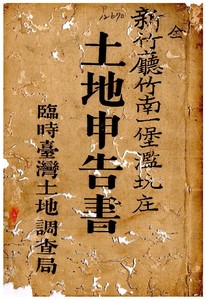 全
新竹廳竹南一堡濫坑庄
土地申告書
臨時臺灣土地調查局